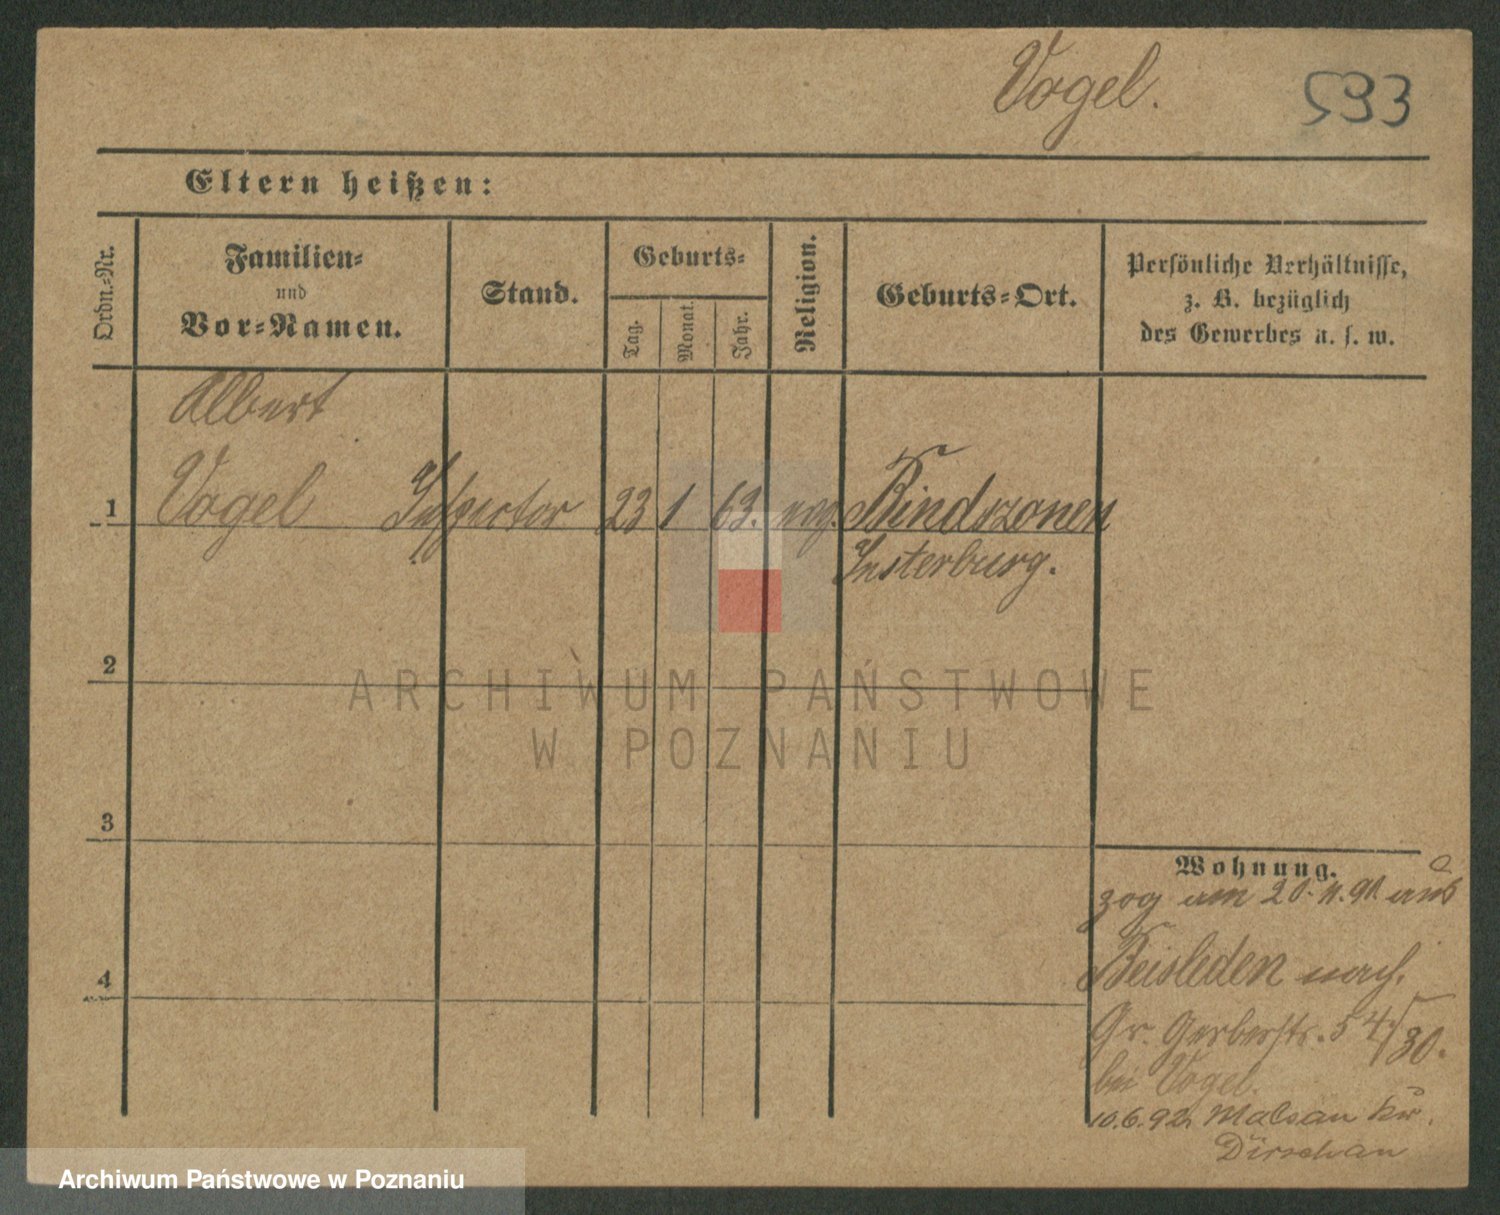 Vogel. 593
Eltern heißen:
Ordn.-Nr.
Familien-
und
Vor-Namen.
Stand.
Geburts-
Tag.
Monat.
Jahr.
Religion.
Geburts-Ort.
Persönliche Verhältnisse,
z. B. bezüglich
des Gewerbes u. s. w.
Albert
1 Vogel Inspector 23 1 63. evg.
Insterburg.
2
ARCHIWUM PAŃSTWOWE
W POZNANIU
3
4
Wohnung.
zog am 20. 11. 91 aus
Beisleden nach
Gr. Gerberstr. 54/30.
bei Vogel.
10.6.92 Malsau Kr.
Dirschau
Archiwum Państwowe w Poznaniu